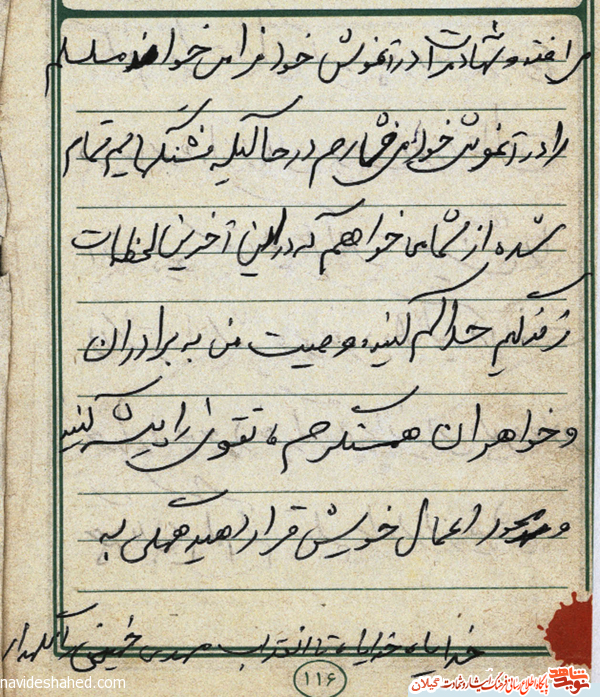 می افتد و شهادت را در آغوش خود فرا می خواند مسلسلم
را در آغوش خود می فشارم در حالیکه فشنگهایم تمام
شده از شما می خواهم که در این آخرین لحظات
زندگیم حلالم کنید. وصیت من به برادران
و خواهران همسنگرم، تقوی را پیشه کنید
و محور اعمال خویش قرار دهید همگی به
خدایا، خدایا، تا انقلاب مهدی خمینی را نگهدار
۱۱۶
navideshahed.com
نوید شاهد
پایگاه اطلاع رسانی فرهنگ ایثار و شهادت گیلان